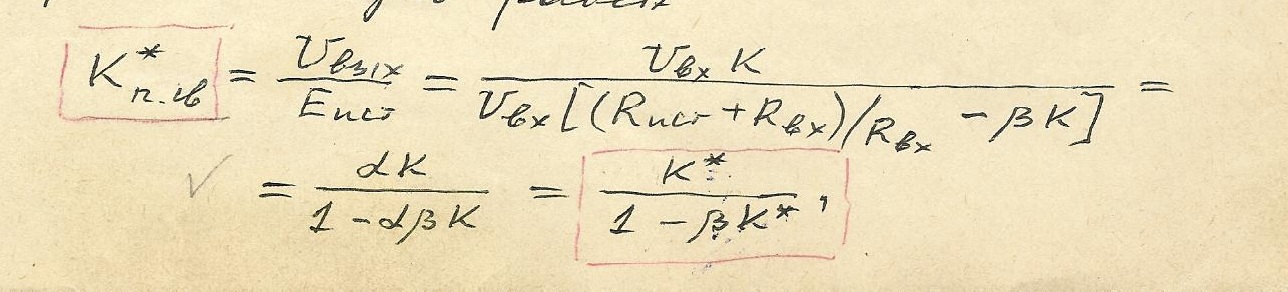 K*п.ив = Uвых / Eист = Uвх K / Uвх [(Rист + Rвх)/Rвх - βK] =
= αK / 1 - αβK = K* / 1 - βK* ,